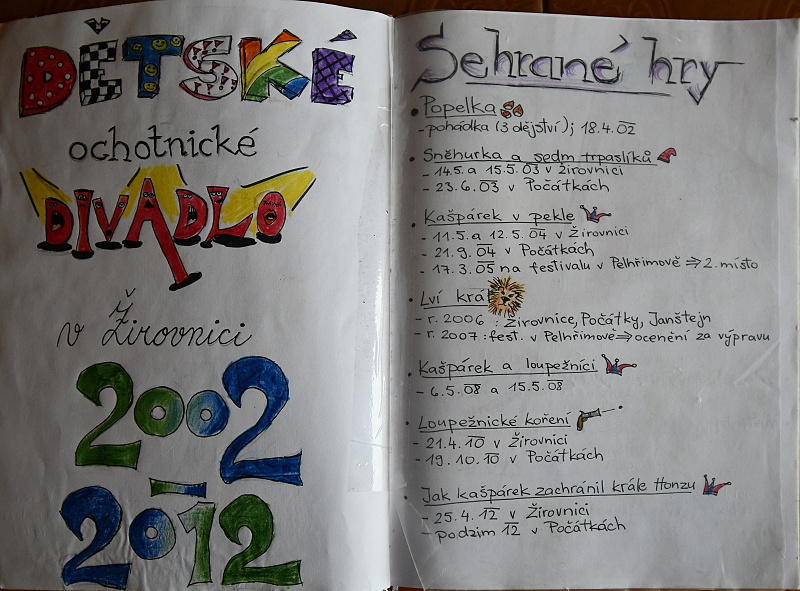 DĚTSKÉ
ochotnické
DIVADLO
v Žirovnici
2002
–
2012
Sehrané hry
• Popelka
- pohádka (3 dějství); 18.4. 02
• Sněhurka a sedm trpaslíků
- 14.5. a 15.5. 03 v Žirovnici
- 23.6. 03 v Počátkách
• Kašpárek v pekle
- 11.5. a 12.5. 04 v Žirovnici
- 21.9. 04 v Počátkách
- 17.3. 05 na festivalu v Pelhřimově ⇒ 2. místo
• Lví král
- r. 2006 : Žirovnice, Počátky, Janštejn
- r. 2007 : fest. v Pelhřimově ⇒ ocenění za výpravu
• Kašpárek a loupežníci
- 6.5. 08 a 15.5. 08
• Loupežnické koření
- 21.4. 10 v Žirovnici
- 19.10. 10 v Počátkách
• Jak kašpárek zachránil krále Honzu
- 25.4. 12 v Žirovnici
- podzim 12 v Počátkách